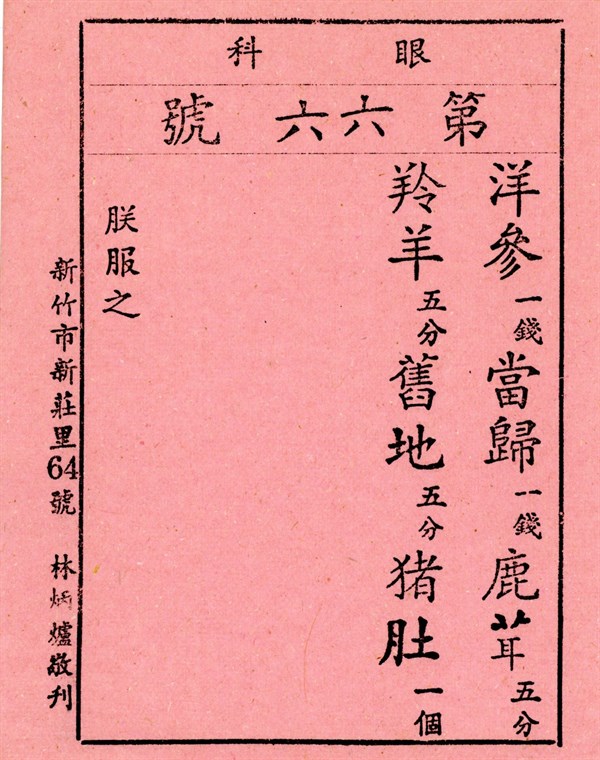 眼科
第六六號
洋參一錢當歸一錢鹿茸五分
羚羊五分舊地五分猪肚一個
朕服之
新竹市新莊里64號 林炳爐敬刊